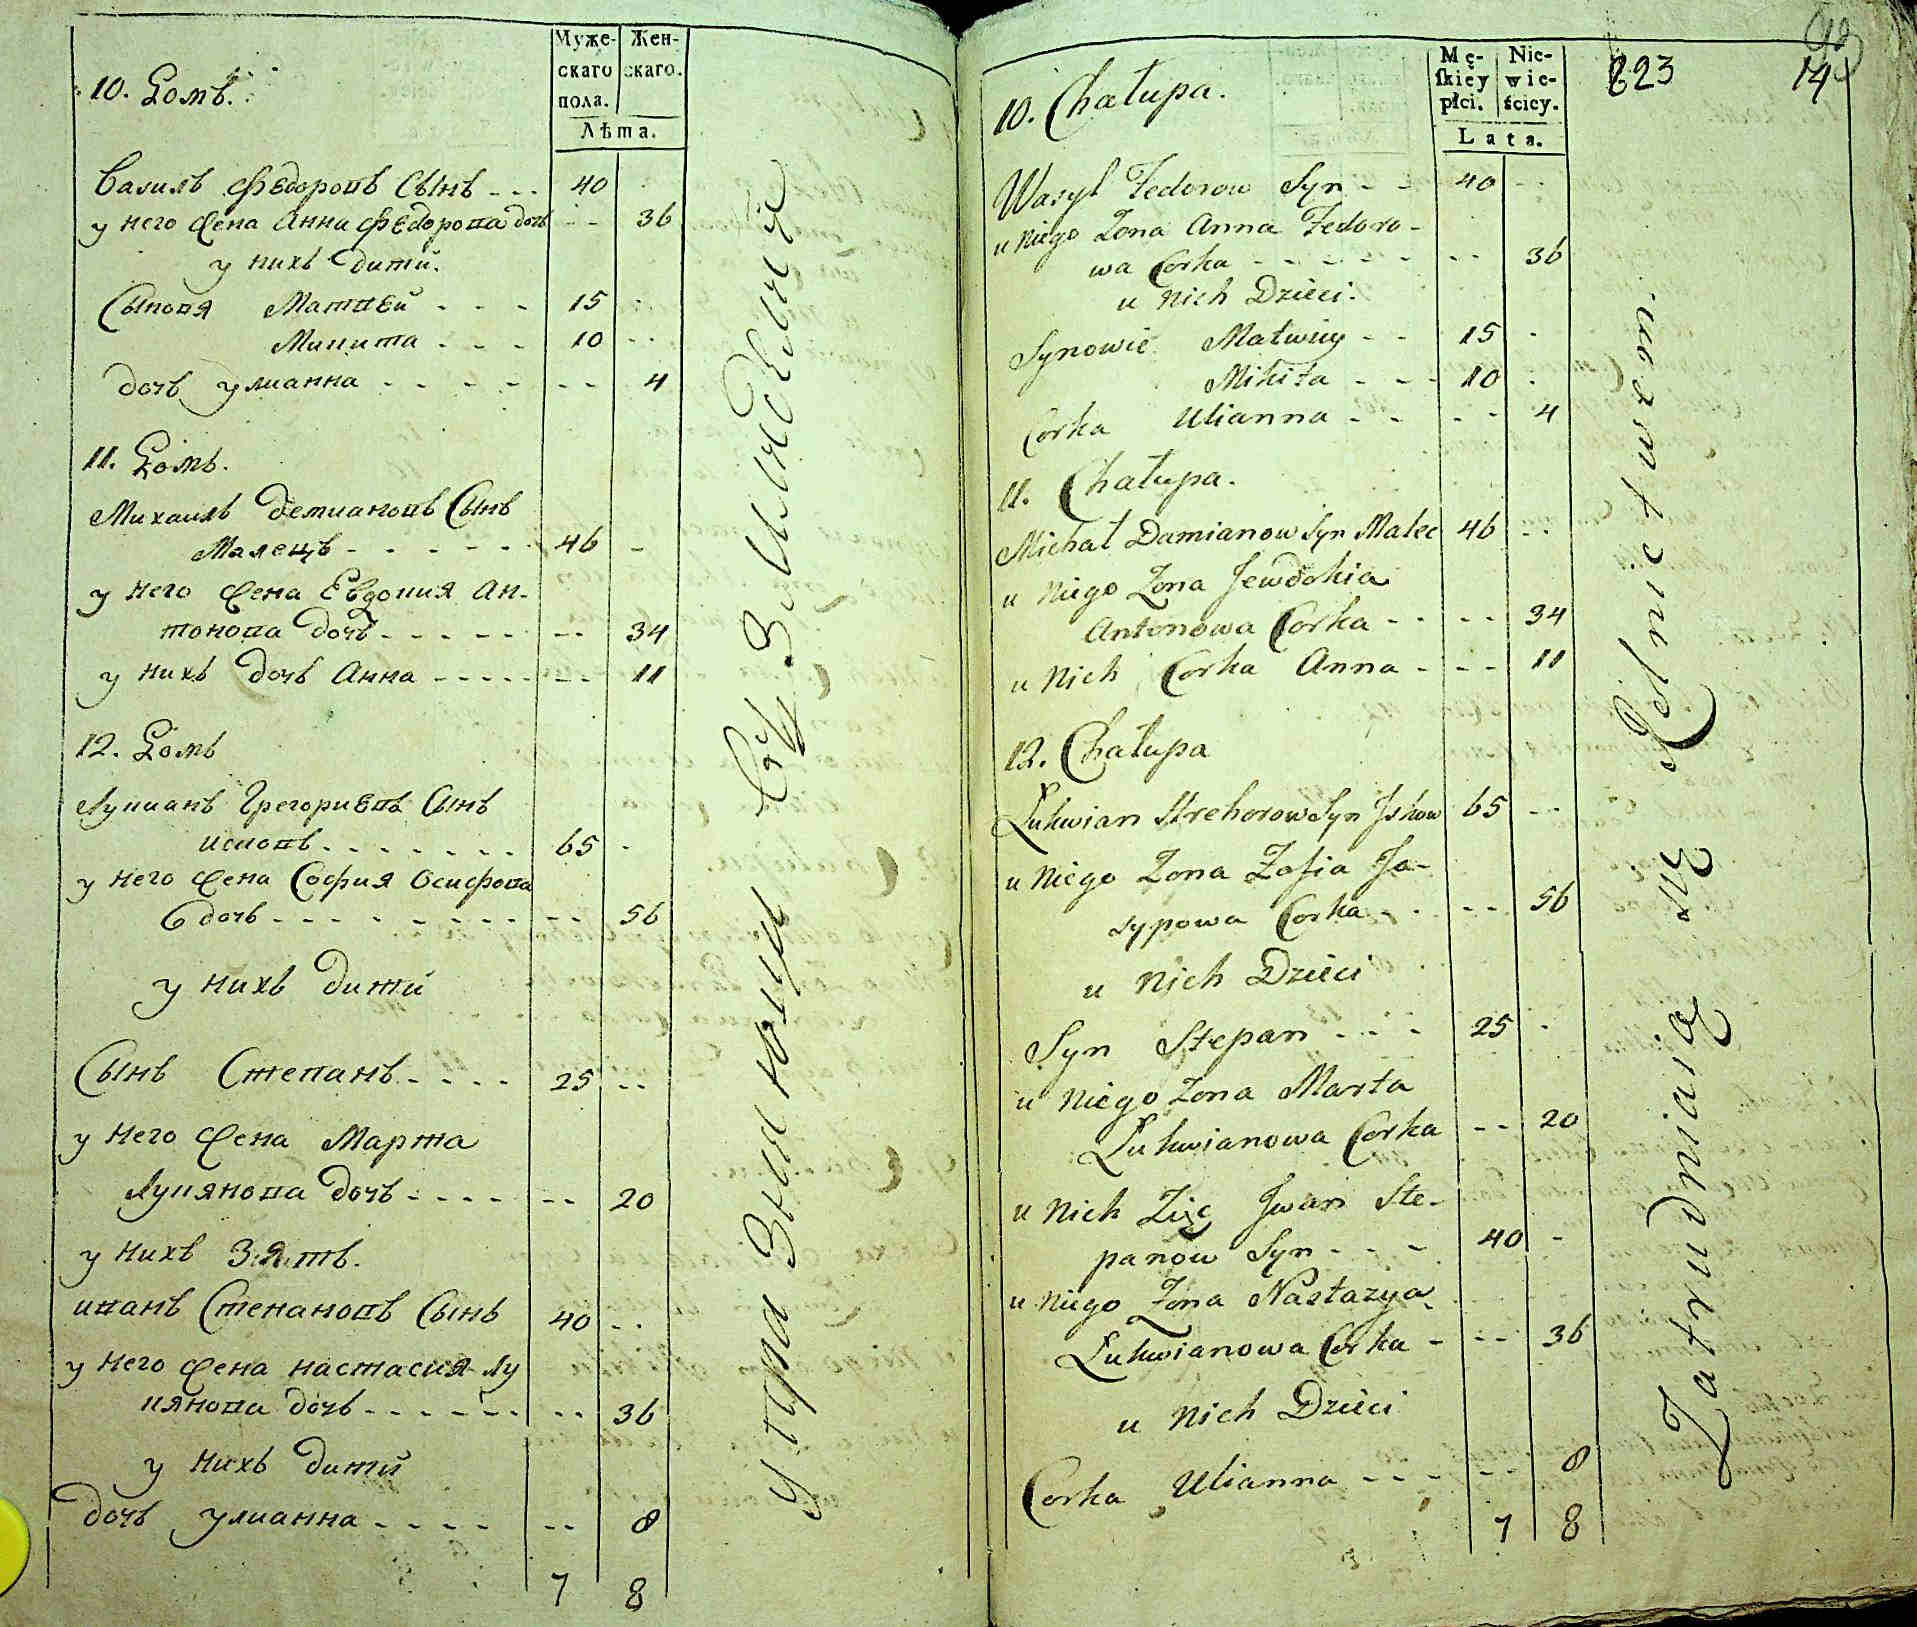 Муже-
скаго
пола.
Жен-
скаго.
Лѣта.
10. Домъ.
Василь Федоровъ Сынъ - - - 40
у него Жена Анна Федорова дочь - - 36
у нихъ дити.
Сыновя Матвей - - - 15
Микита - - - 10
дочь Улианна - - - - - - - 4
11. Домъ.
Михаилъ Демиановъ Сынъ
Малецъ - - - - - 46 -
у него Жена Евдокия Ан-
тонова дочь - - - - - - - 34
у нихъ дочь Анна - - - - - - - 11
12. Домъ
Лукианъ Григориевъ Сынъ
Исковъ - - - - - - - 65 -
у него Жена София Осифова
дочь - - - - - - - - - - 56
у нихъ дити
Сынъ Степанъ - - - - 25 - -
у него Жена Марта
Лукянова дочь - - - - - - 20
у нихъ Зять.
иванъ Степановъ Сынъ 40 - -
у него Жена настасия Лу
кянова дочь - - - - - - - - 36
у нихъ дити
дочь улианна - - - - - - 8
7 8
упра Жнянюци Ся Земледелие
Mę-
skiey
płci.
Nie-
wie-
ściey.
Lata.
223
14
10. Chałupa.
Wasyl Fedorow Syn - - 40 - -
u niego Zona Anna Fedoro-
wa Corka - - - - - - - - 36
u nich Dzieci.
Synowie Matwiiy - - 15 -
Mikita - - - 10 -
Corka Ulianna - - - - 4
11. Chałupa.
Michał Damianow Syn Malec 46 - -
u niego Zona Jewdokia
Antonowa Corka - - - - 34
u nich Corka Anna - - - 11
12. Chałupa
Łukwian Hrehorow Syn Jskow 65 - -
u niego Zona Zofia Jo-
sypowa Corka - - - - 56
u nich Dzieci
Syn Stepan - - - 25 -
u niego Zona Marta
Łukwianowa Corka - - 20
u nich Zięć Jwan Ste-
panow Syn - - - 40 -
u niego Zona Nastazya
Łukwianowa Corka - - - 36
u nich Dzieci
Corka Ulianna - - - - - - 8
7 8
Zatrudniaią się Rolnictwem.